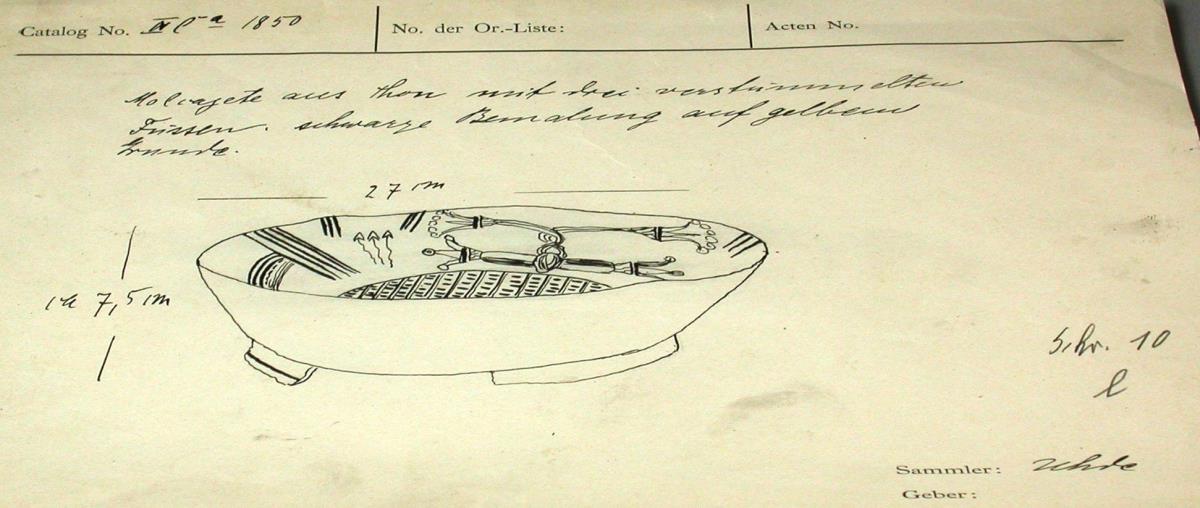 Catalog No. IV Ca 1850 No. der Or.-Liste: Acten No.
Molcajete aus Thon mit drei verstümmelten
Füssen. schwarze Bemalung auf gelbem
Grunde.
27 cm
ca 7,5 cm
Schr. 10
l
Sammler: Uhde
Geber: